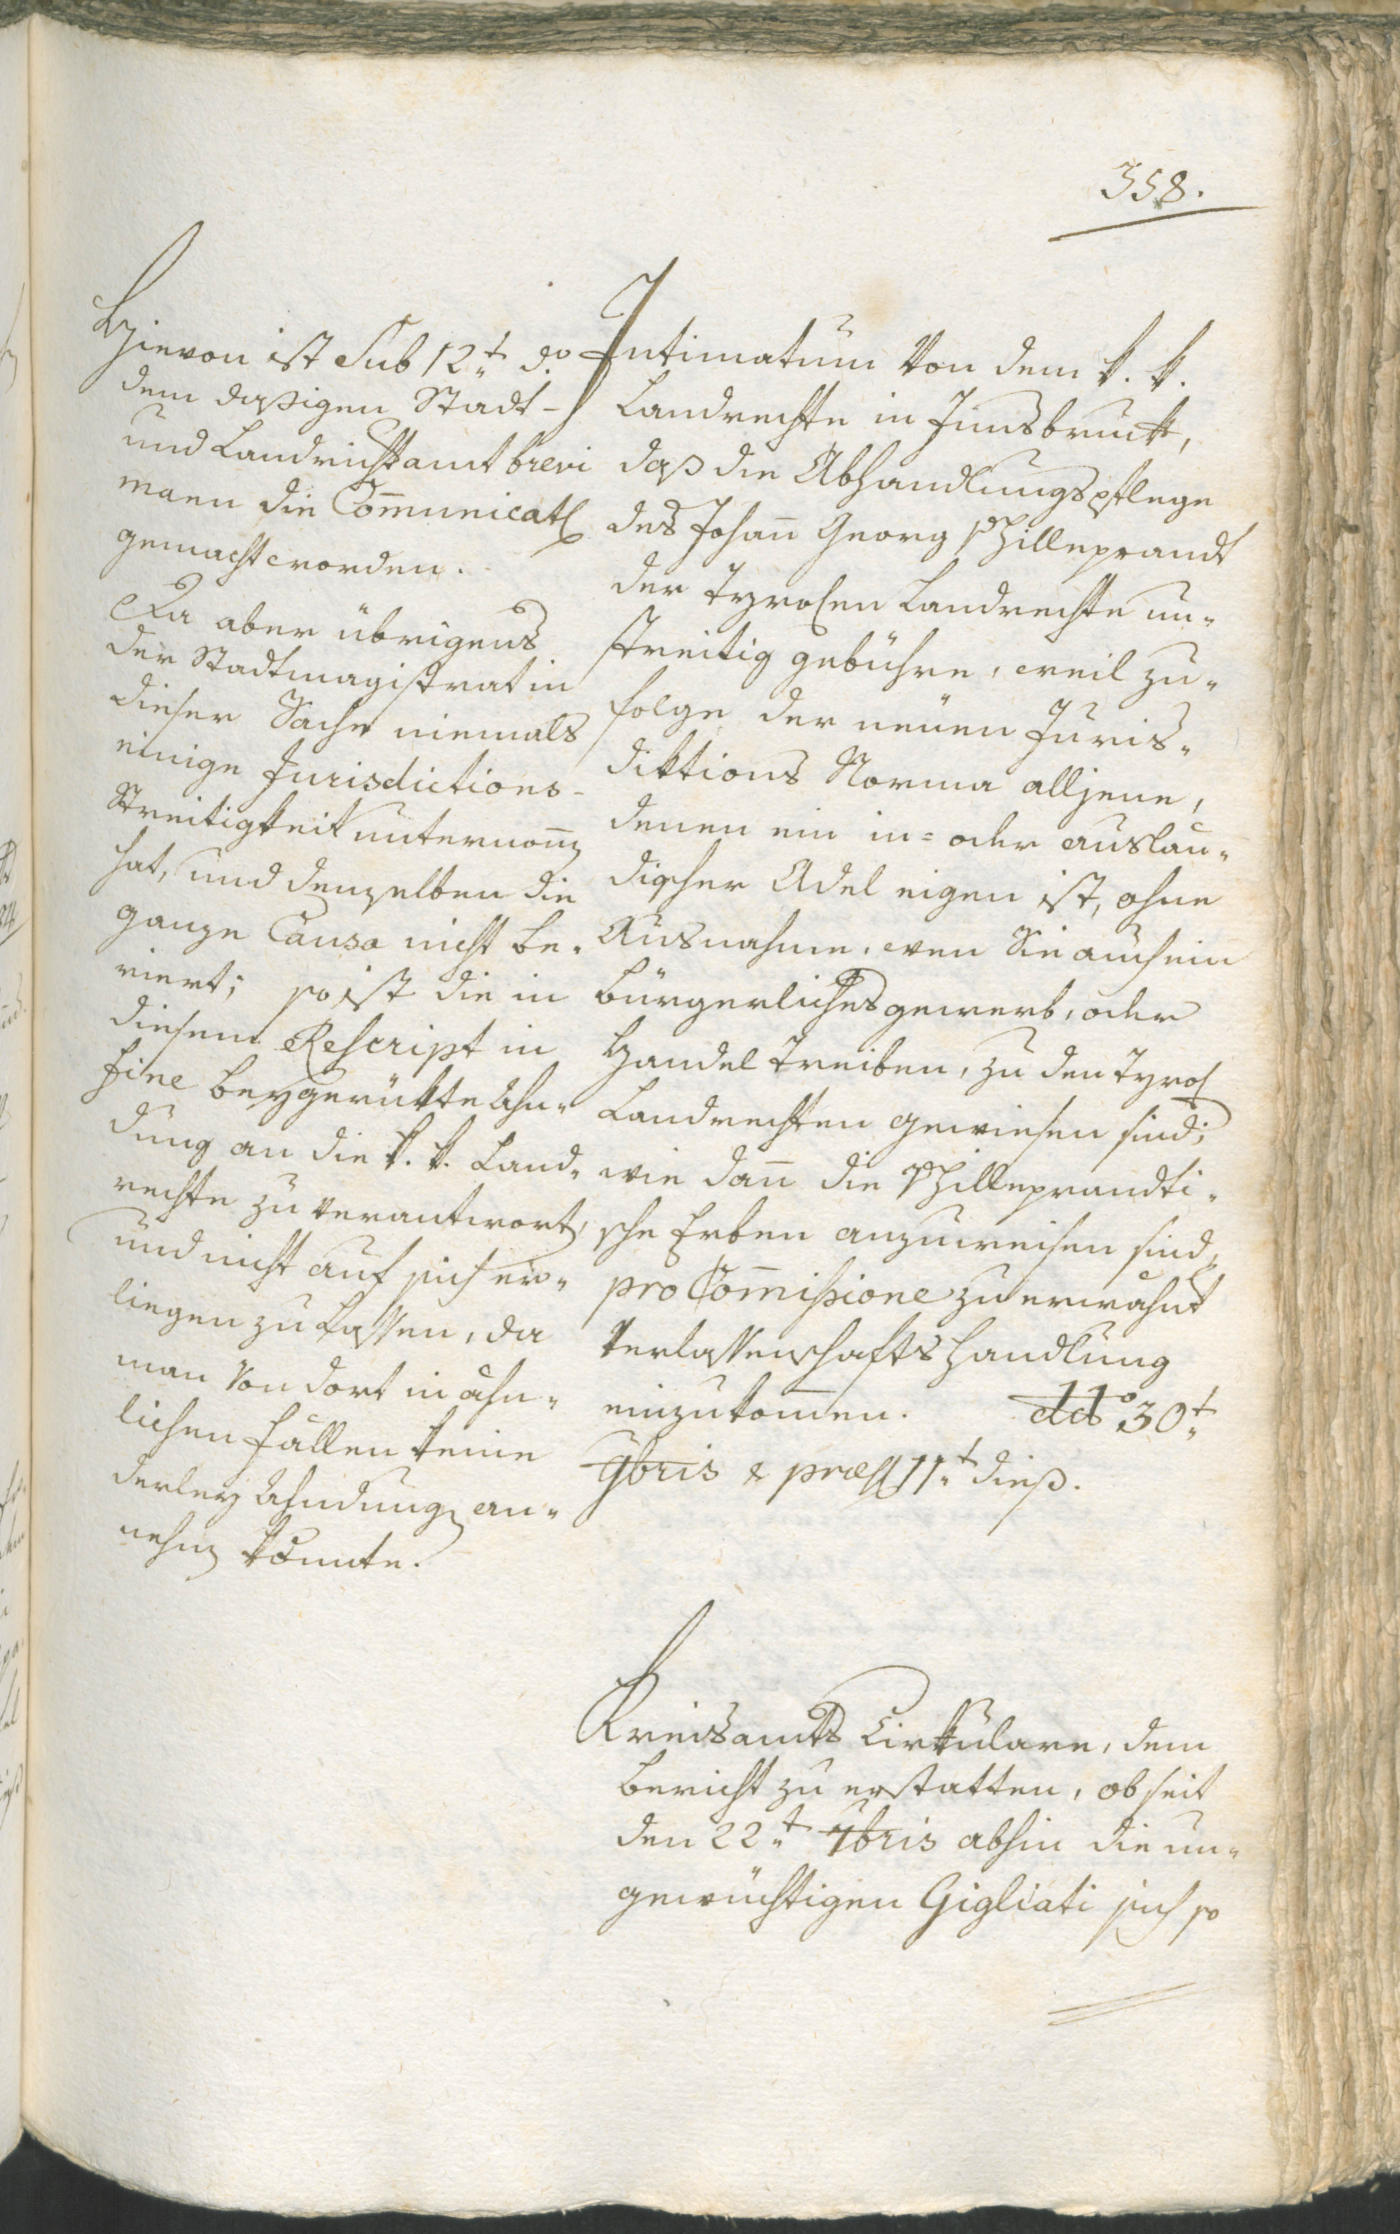 358.
Hievon ist Sub 12t. do
dem dasigen Stadt-
und Landrichtamt brevi
manu die Com̄unicatℓ
gemacht worden.
Da aber übrigens
der Stadtmagistrat in
dieser Sache niemals
einige Jurisdictions-
Streitigkeit unternom̄
hat, und denselben die
ganze Causa nicht be-
riert; so ist die in
diesem Rescript in
fine beygerükte Ahn-
dung an die k. k. Land-
rechte zu verantwort,
und nicht auf sich er-
liegen zu lassen, da
man von dort in ähn-
lichen Fällen keine
derley Ahndung an-
nehm könnte.
Intimatum von dem k. k.
Landrechte in Innsbruck,
daß die Abhandlungspflege
des Johan̄ Georg Hilleprandt
der Tyrolen Landrechte un-
streitig gebühre, weil zu-
folge der neuen Juris-
diktions Norma alljene,
denen ein in- oder auslän-
discher Adel eigen ist, ohne
Ausnahme, wen Sie auch ein
bürgerliches gewerb, oder
Handel treiben, zu den Tyrol
Landrechten gewiesen sind;
wie dan̄ die Hilleprandti-
sche Erben anzuweisen sind,
pro Com̄issione zu erwähnt
Verlassenschaftshandlung
einzukom̄en. ddo 30t.
9bris & præs 11t. dieß.
Kreisamts Cirkulare, dem
Bericht zu erstatten, ob seit
den 22t. 7bris abhin die un-
gewüchtigen Gigliati sich so